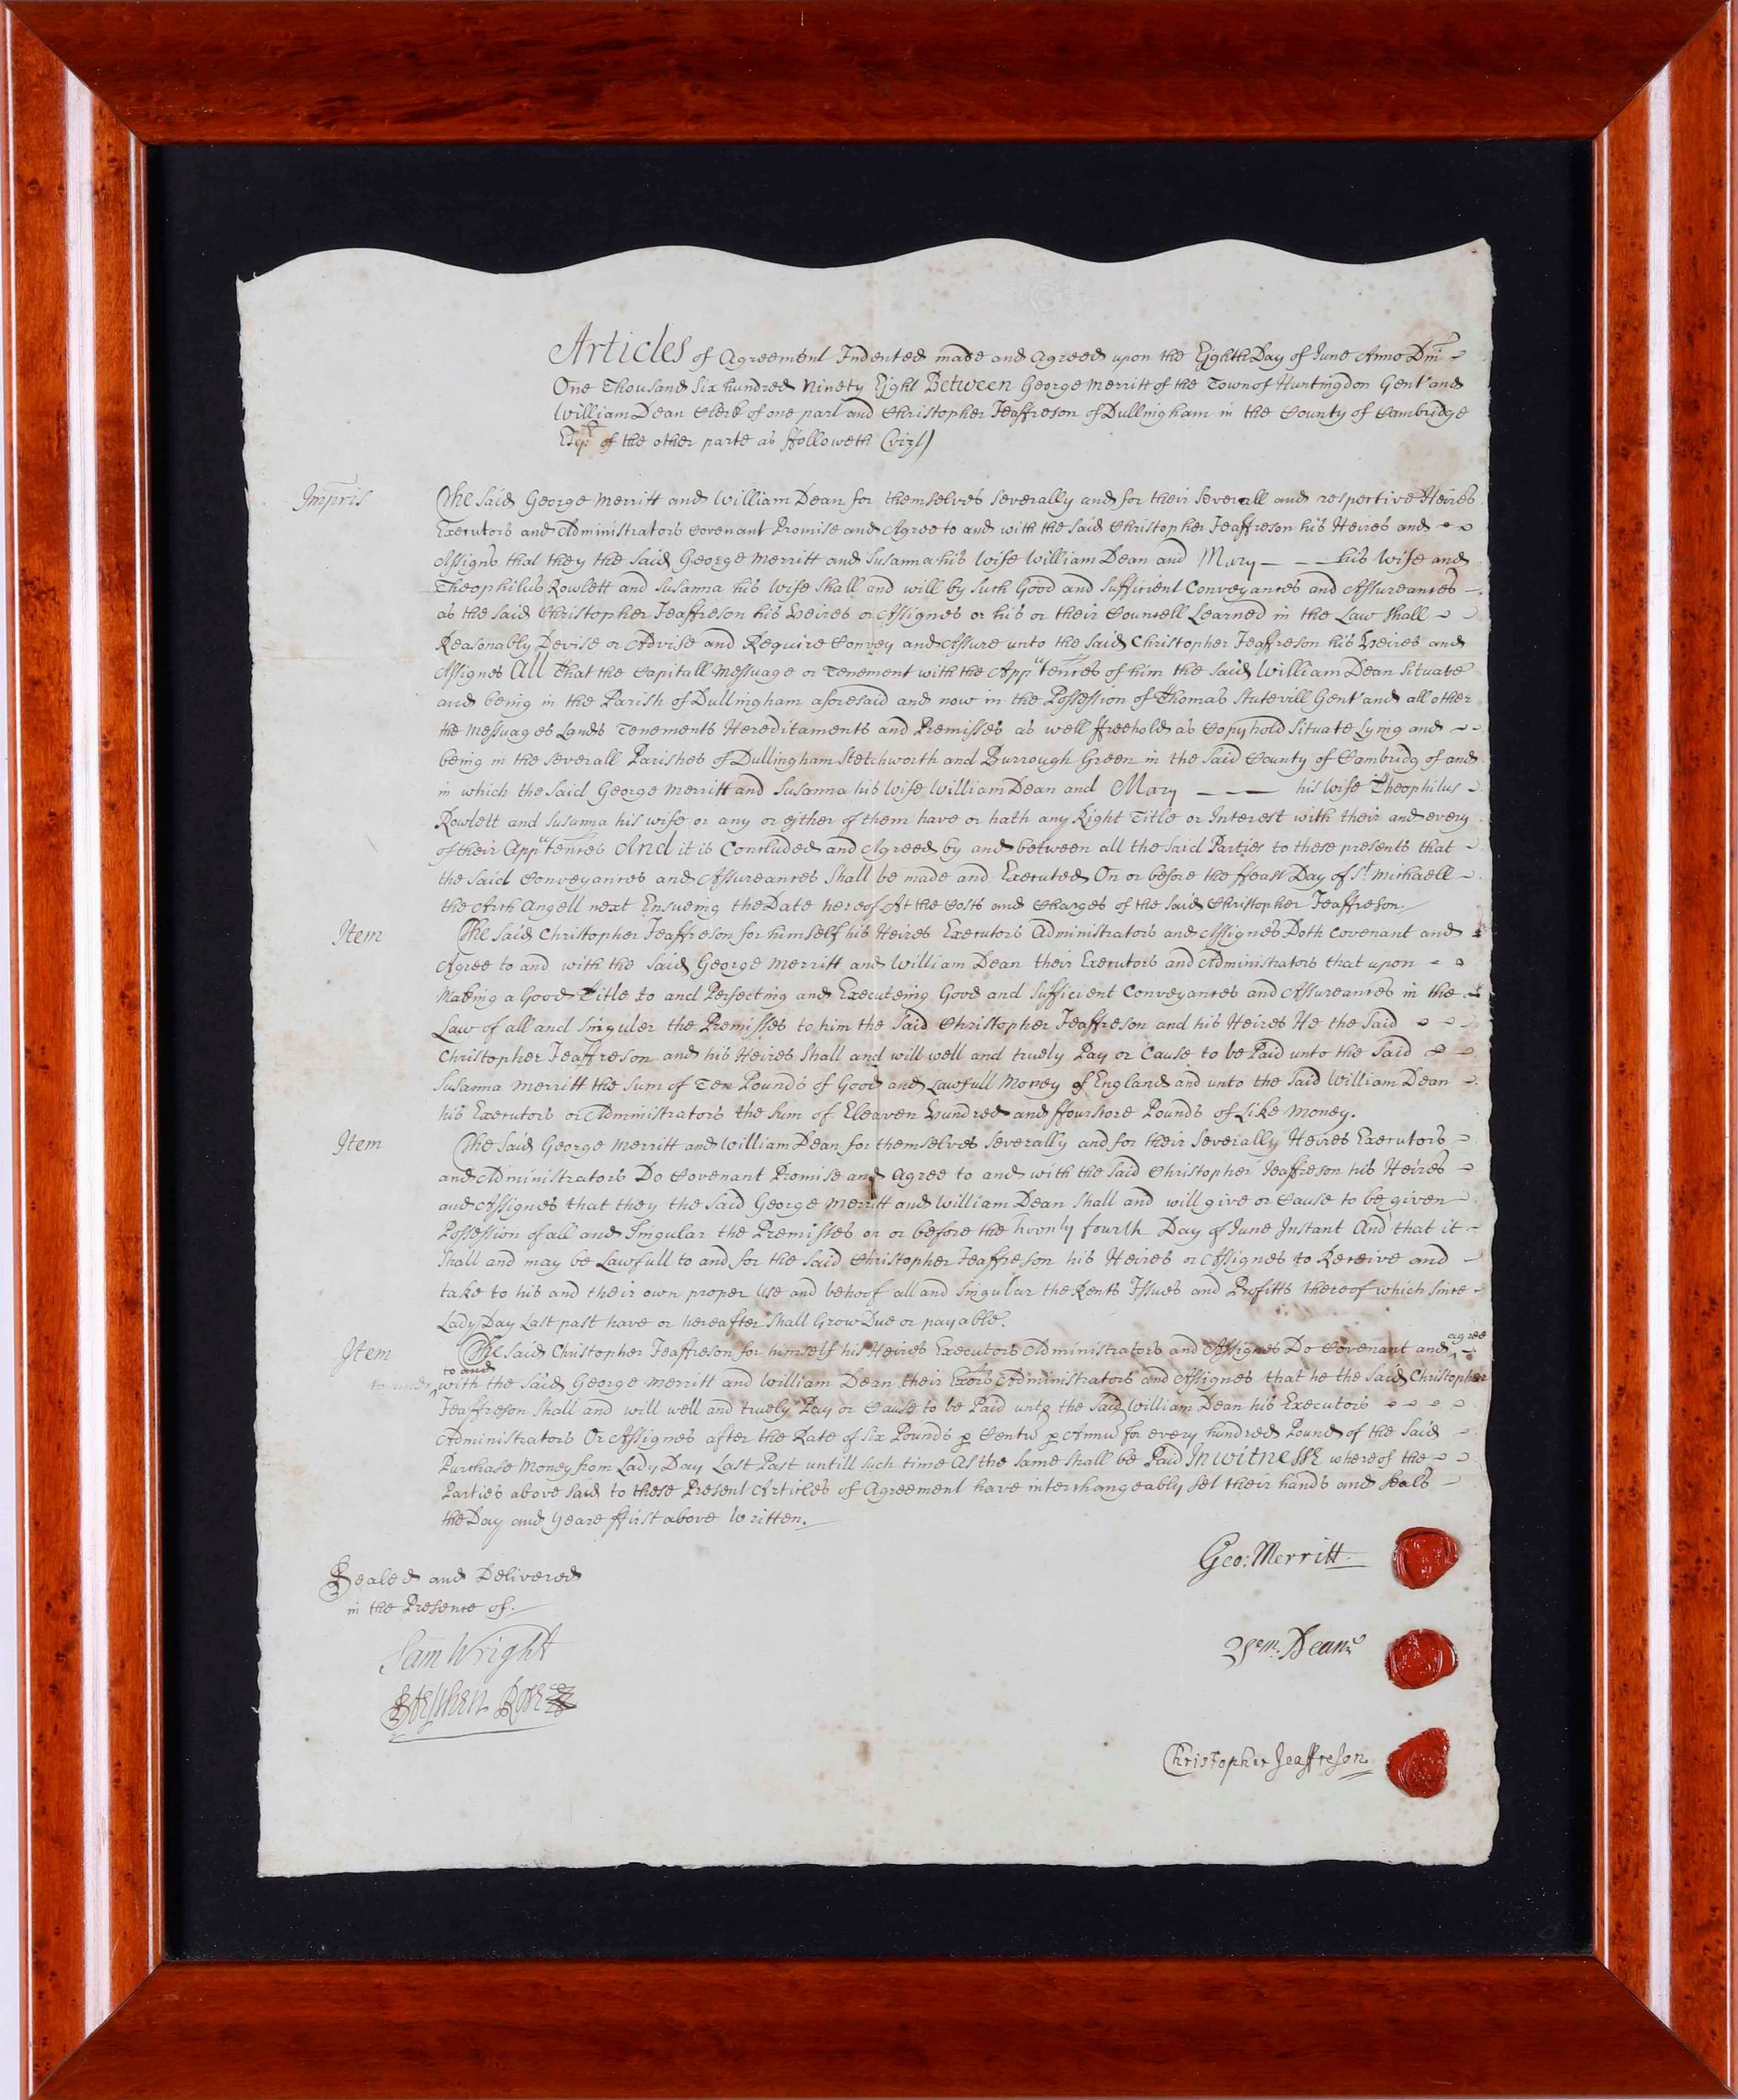 Articles of Agreement Indented made and agreed upon the Eighth Day of June Anno Dm̄
One Thousand Six hundred Ninety Eight Between George Merritt of the Town of Huntingdon Gent and
William Dean Clerk of one part and Christopher Jeaffreson of Dullingham in the County of Cambridge
Esqr of the other parte as ffolloweth (vizt)
Impris The said George Merritt and William Dean for themselves severally and for their severall and respective Heires
Executors and Administrators Covenant Promise and Agree to and with the said Christopher Jeaffreson his Heires and
Assigns that they the said George Merritt and Susanna his wife William Dean and Mary — — — his wife and
Theophilus Rowlett and Susanna his wife shall and will by such Good and sufficient Conveyances and Assureances
as the said Christopher Jeaffreson his Heires or Assignes or his or their Councell Learned in the Law shall
Reasonably Devise or Advise and Require Convey and Assure unto the said Christopher Jeaffreson his Heires and
Assignes All That the Capitall Messuage or Tenement with the Appurtences of him the said William Dean situate
and being in the Parish of Dullingham aforesaid and now in the Possession of Thomas Stutevill Gent and all other
the Messuages Lands Tenements Hereditaments and Premisses as well ffreehold as Copyhold situate Lying and
being in the severall Parishes of Dullingham Stetchworth and Burrough Green in the said County of Cambridg of and
in which the said George Merritt and Susanna his wife William Dean and Mary — — — his wife Theophilus
Rowlett and Susanna his wife or any or either of them have or hath any Right Title or Interest with their and every
of their Appurtences And it is Concluded and Agreed by and between all the said Parties to these presents that
the said Conveyances and Assureances shall be made and Executed On or before the ffeast Day of St Michaell
the Arch Angell next Ensueing the Date hereof At the Costs and Charges of the said Christopher Jeaffreson.
Item The said Christopher Jeaffreson for himself his Heires Executors Administrators and Assignes Doth Covenant and
Agree to and with the said George Merritt and William Dean their Executors and Administrators that upon
Making a Good Title to and Perfecting and Executeing Good and sufficient Conveyances and Assureances in the
Law of all and singuler the Premisses to him the said Christopher Jeaffreson and his Heires He the said
Christopher Jeaffreson and his Heires shall and will well and truely Pay or Cause to be Paid unto the said
Susanna Merritt the sum of Ten Pounds of Good and Lawfull Money of England and unto the said William Dean
his Executors or Administrators the sum of Eleaven Hundred and ffourscore Pounds of Like Money.
Item The said George Merritt and William Dean for themselves severally and for their severally Heires Executors
and Administrators Do Covenant Promise and Agree to and with the said Christopher Jeaffreson his Heires
and Assignes that they the said George Merritt and William Dean shall and will give or Cause to be given
Possession of all and singular the Premisses on or before the twenty fourth Day of June Instant And that it
shall and may be Lawfull to and for the said Christopher Jeaffreson his Heires or Assignes to Receive and
take to his and their own proper Use and behoof all and singular the Rents Issues and Profitts thereof which since
Lady Day Last past have or hereafter shall Grow Due or payable.
Item The said Christopher Jeaffreson for himself his Heires Executors Administrators and Assignes Do Covenant and agree
to and with the said George Merritt and William Dean their Exors Administrators and Assignes that he the said Christopher
Jeaffreson shall and will well and truely Pay or Cause to be Paid unto the said William Dean his Executors
Administrators Or Assignes after the Rate of six Pounds p Centu p Annu for every hundred Pound of the said
Purchase Money from Lady Day Last Past untill such time As the same shall be Paid In witnesse whereof the
Parties above said to these Present Articles of Agreement have interchangeably set their hands and seals
the Day and Yeare ffirst above Written.
Sealed and Delivered
in the Presence of.
Sam Wright
Stephen
Geo: Merritt
Wm. Deane
Christopher Jeaffreson.